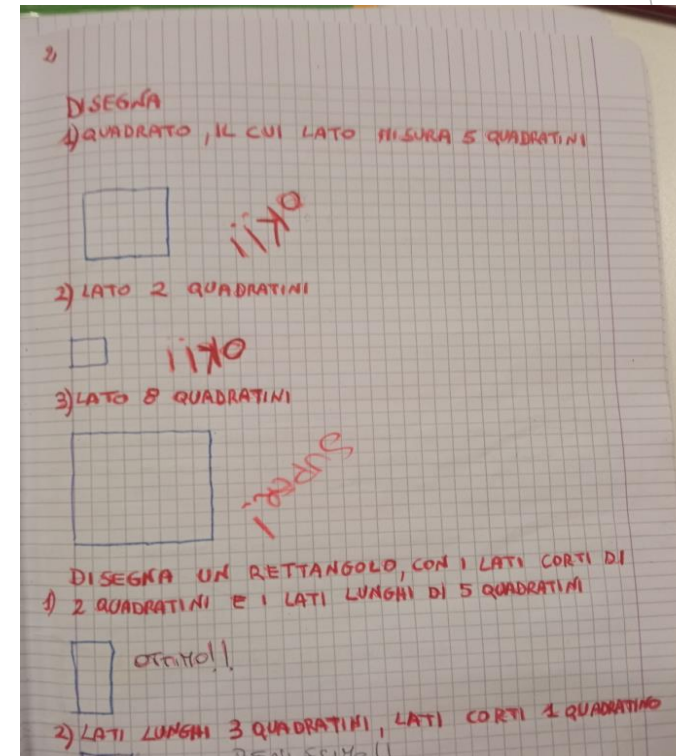 2)
DISEGNA
1) QUADRATO, IL CUI LATO MISURA 5 QUADRATINI
OK!!
2) LATO 2 QUADRATINI
OK!!
3) LATO 8 QUADRATINI
SUPER!
DISEGNA UN RETTANGOLO, CON I LATI CORTI DI
1) 2 QUADRATINI E I LATI LUNGHI DI 5 QUADRATINI
OTTIMO!!
2) LATI LUNGHI 3 QUADRATINI, LATI CORTI 1 QUADRATINO